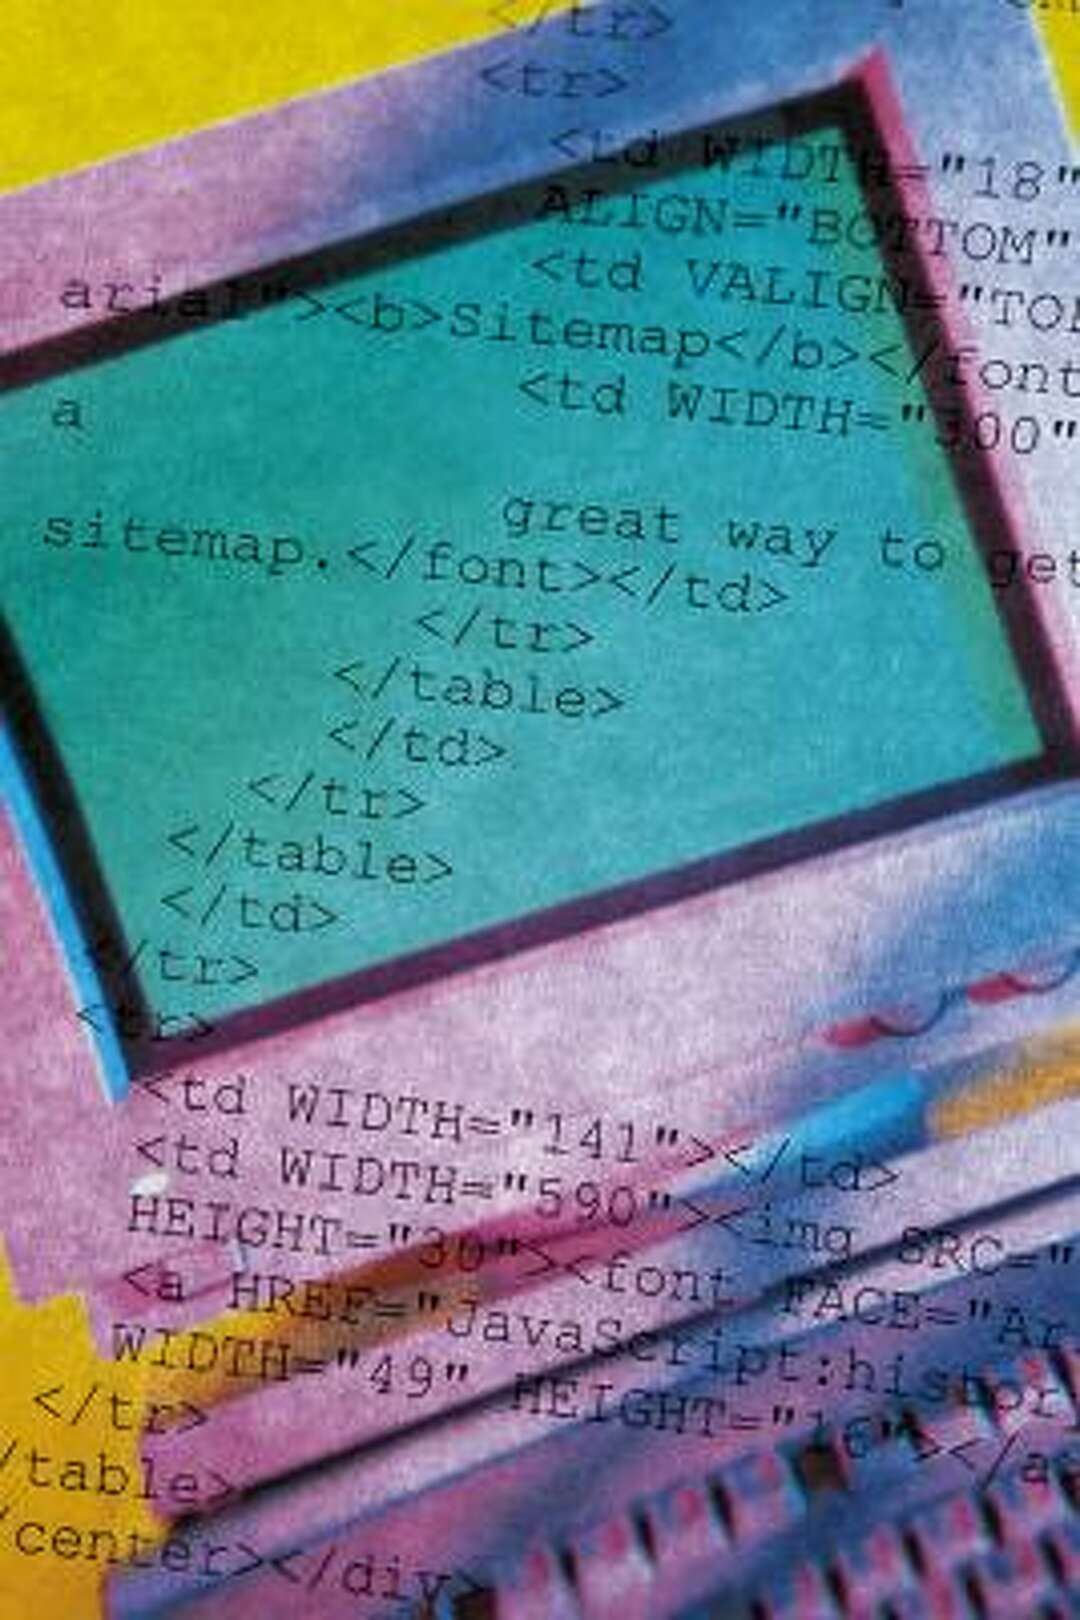 </tr>
<tr>
<td WIDTH="18"
ALIGN="BOTTOM"
<td VALIGN="TOP
arial"><b>Sitemap</b></font
<td WIDTH="300"
a
great way to get
sitemap.</font></td>
</tr>
</table>
</td>
</tr>
</table>
</td>
/tr>
<tr>
<td WIDTH="141"></td>
<td WIDTH="590"><img SRC="
HEIGHT="30"><font FACE="Ar
<a HREF="JavaScript:histor
WIDTH="49" HEIGHT="16"></a
</tr>
/table>
/center></div>